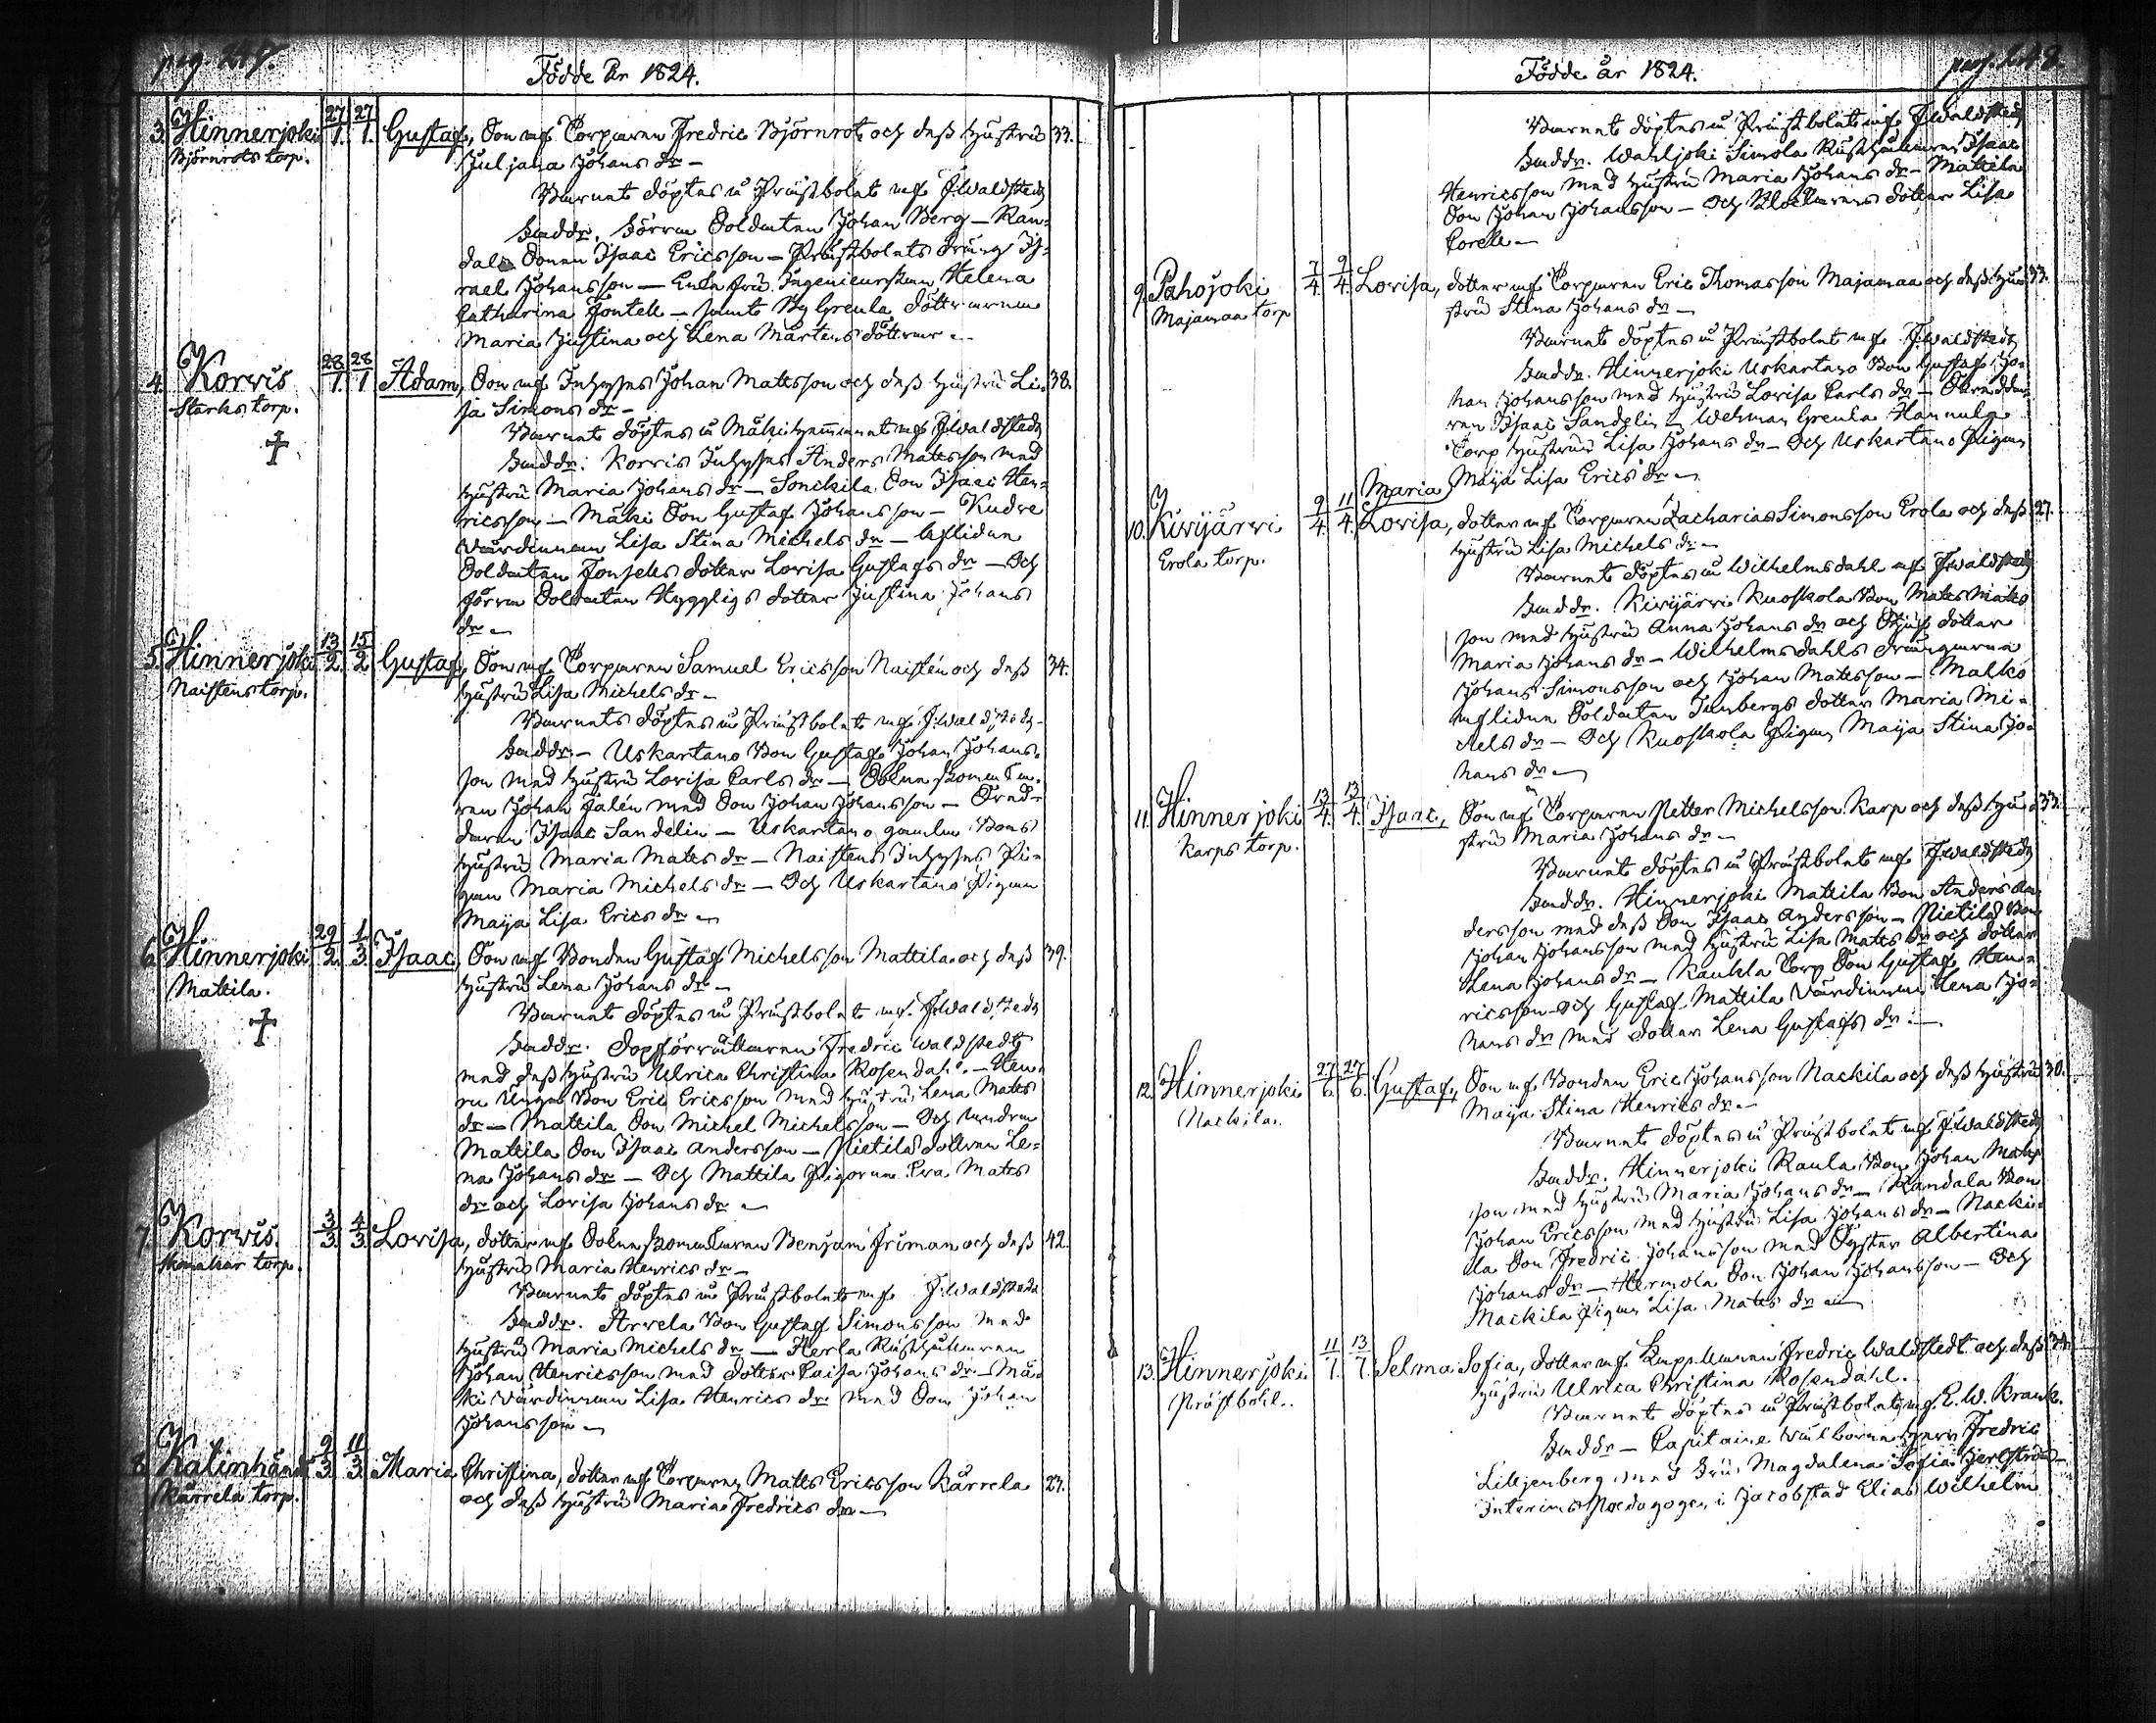 pag 247.
Födde År 1824.
3. Hinnerjoki 27/1. 27/1. Gustaf, Son af Torparen Fredric Björnrot och dess Hustru 33.
Björnrots torp. Juljana Johans dr –
Barnet döptes i Prästbolet af F. Waldstedt
Faddr. Förra Soldaten Johan Berg – Ran-
dala Sonen Isaac Ericsson – Prästbolets Dräng Is-
rael Johansson – Enke fru Ingenieurskan Helena
Catharina Fontell – samt By Greula Döttrarna
Maria Justina och Lena Mårtens döttrar –
4. Korvis 28/1. 28/1 Adam, Son af Inhyses Johan Matsson och dess Hustru Li- 38.
Starks torp. sa Simons dr –
Barnet döptes i Mäki Hemmanet af F. Waldstedt
Faddr: Korvis Inhyses Anders Matsson med
Hustru Maria Johans dr – Sonckila Son Isaac Hen-
ricsson – Mäki Son Gustaf Johansson – Kudre
Värdinnan Lisa Stina Michels dr – aflidne
Soldaten Fonsells dotter Lovisa Gustafs dr – Och
förra Soldaten Hyggligs dotter Justina Johans
dr –
5. Hinnerjoki 13/2. 15/2 Gustaf, Son af Torparen Samuel Ericsson Naisten och dess 34.
Naistens torp. Hustru Lisa Michels dr –
Barnets döptes i Prästbolet af F. Waldstedt
Faddr. – Uskartano Bon Gustaf Johan Johans-
son med Hustru Lovisa Carls dr – Soln Skomaka-
ren Johan Jalén med Son Johan Johansson –
Isaac Sandelin – Uskartano gamla Bons
Hustru Maria Mats dr – Naistens Inhyses Pi-
gan Maria Michels dr – Och Uskartano Pigan
Maija Lisa Erics dr –
6. Hinnerjoki 29/2. 1/3. Isaac, Son af Bonden Gustaf Michelsson Mattila och dess 39.
Mattila. Hustru Lena Johans dr –
Barnet döptes i Prästbolet af F. Waldstedt
Faddr. Dopförrättaren Fredric Waldstedt
med dess Hustru Ulrica Christina Rosendahl. –
Unga Bon Eric Ericsson med Hustru Lena Mats
dr – Mattila Son Michel Michelsson – Och andra
Mattila Son Isaac Andersson – Pietilä dottren Le-
na Johans dr – Och Mattila Pigorna Eva Mats
dr och Lovisa Johans dr –
7. Korvis. 3/3. 4/3. Lovisa, dotter af Soln Skomakaren Benjam Friman och dess 42.
torp. Hustru Maria Henrics dr –
Barnet döptes i Prästbolet af F. Waldstedt
Faddr. Arvela Bon Gustaf Simonsson med
Hustru Maria Michels dr – Herla Rusthållaren
Johan Henricsson med dotter Caisa Johans dr – Mä-
ki Värdinnan Lisa Henrics dr med Son Johan
Johansson –
8. 9/3. 11/3. Maria Christina, dotter af Torparen Matts Ericsson Kärrela 27.
Kärrela torp. och dess Hustru Maria Fredrics dr –
pag. 248.
Födde år 1824.
Barnet döptes i Prästbolet af F. Waldstedt
Faddr. Wahljoki Simola Rusthållaren Isaac
Henricsson med Hustru Maria Johans dr – Mattila
Son Johan Johansson – Och Klockarens dotter Lisa
Corell –
9. Pahojoki 7/4. 9/4. Lovisa, dotter af Torparen Eric Thomasson Majamaa och dess Hu- 33.
Majamaa torp stru Stina Johans dr –
Barnet döptes i Prästbolet af F. Waldstedt
Faddr. Hinnerjoki Uskartano Bon Gustaf Jo-
han Johansson med Hustru Lovisa Carls dr –
Isaac Sandelin – Wehman Greula Hannula
Torp Hustrun Lisa Johans dr – Och Uskartano Pigan
Maija Lisa Erics dr –
10. Kivijärvi 9/4. 11/4. Maria Lovisa, dotter af Torparen Zacharias Simonsson Erola och dess 27.
Erola torp. Hustru Lisa Michels dr –
Barnet döptes i Wilhelmsdahl af F. Waldstedt
Faddr. Kivijärvi Kuoskola Bon Mats Mats
son med Hustru Anna Johans dr och dotter
Maria Johans dr – Wilhelmsdahls Drängarna
Johans Simonsson och Johan Matsson – Malko
aflidne Soldaten Tunbergs dotter Maria Mi-
chels dr – Och Kuoskola Pigan Maija Stina Jo-
hans dr –
11. Hinnerjoki 13/4. 13/4. Isaac, Son af Torparen Petter Michelsson Karp och dess Hu- 33.
Karps torp. stru Maria Johans dr –
Barnet döptes i Prästbolet af F. Waldstedt
Faddr. Hinnerjoki Mattila Bon Anders An-
dersson med dess Son Isaac Andersson – Pietilä Bon
Johan Johansson med Hustru Lisa Mats dr och dotter
Lena Johans dr – Kaukla Torp Son Gustaf Hen-
ricsson och Gustaf Mattila Värdinnan Lena Jo-
hans dr med dotter Lena Gustafs dr. –
12. Hinnerjoki 27/6. 27/6. Gustaf, Son af Bonden Eric Johansson Nackila och dess Hustru 30.
Nackila. Maija Stina Henrics dr –
Barnet döptes i Prästbolet af F. Waldstedt
Faddr. Hinnerjoki Kaula Bon Johan Mats
son med Hustru Maria Johans dr – Randala Bon
Johan Ericsson med Hustru Lisa Johans dr – Nacki-
la Son Fredric Johansson med Syster Albertina
Johans dr – Hermola Son Johan Johansson – Och
Nackila Pigan Lisa Mats dr –
13. Hinnerjoki 11/7. 13/7. Selma Sofia, dotter af Kapellanen Fredric Waldstedt och dess 34.
Prästbohl. Hustru Ulrica Christina Rosendahl.
Barnet döptes i Prästbolet af E. W. Krank.
Faddr – Capitaine Välborne Herr Fredric
Lilljenberg med Fru Magdalena Sofia Jerlström –
Interims Paedagogen i Jacobstad Elias Wilhelm